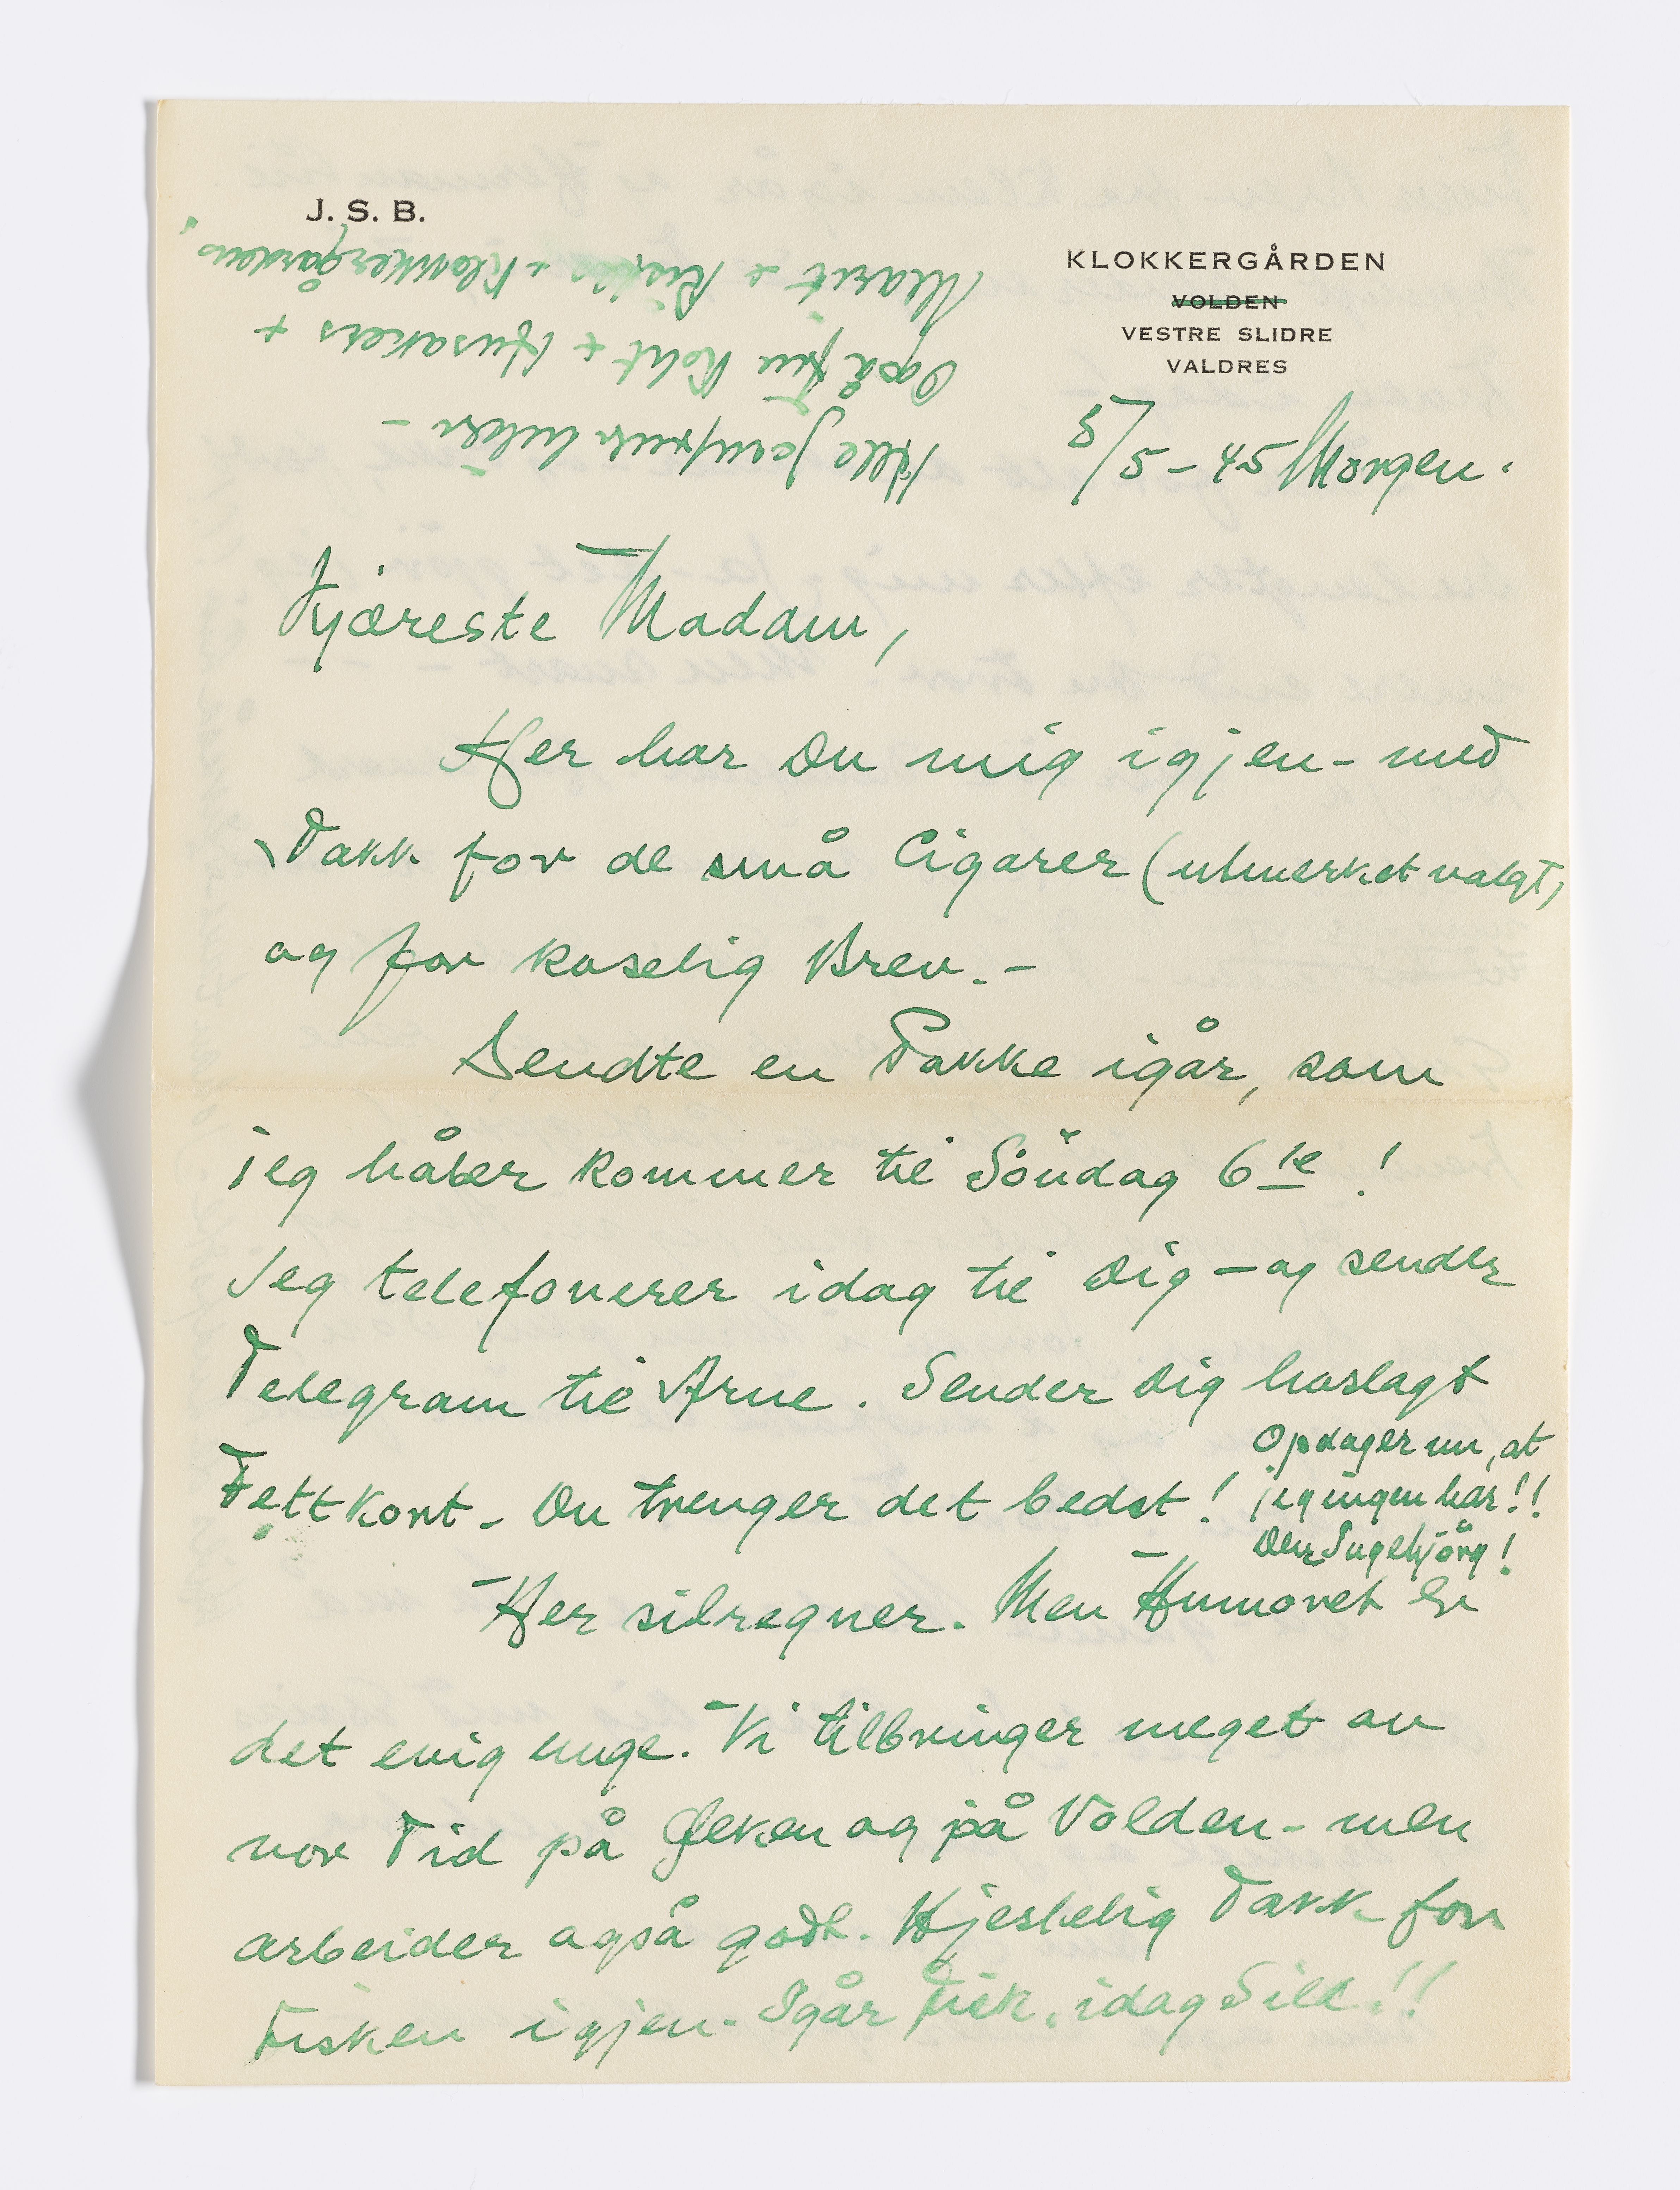 J. S. B.
KLOKKERGÅRDEN
VOLDEN
VESTRE SLIDRE
VALDRES
5/5 - 45 Morgen.
Kjæreste Madam,
Her har Du mig igjen - med
Takk for de små Cigarer (utmerket valgt)
og for koselig Brev. -
Sendte en Pakke igår, som
jeg håber kommer til Söndag 6te !
Jeg telefonerer idag til Dig - og sender
Telegram til Arne. Sender Dig hoslagt
Fettkort - Du trenger det bedst !
Opdager nu, at
jeg ingen har!!
Den Ingebjörg !
Her silregner. Men Humöret er
det evig unge. Vi tilbringer meget av
vor Tid på og på Volden - men
arbeider også godt. Hjertelig Takk for
Fisken igjen. Igår Fisk, idag Sild !!
Alle Jomfruer hilser -
Også Fru Koht + Husakers +
Marit + + Klokkergårdens